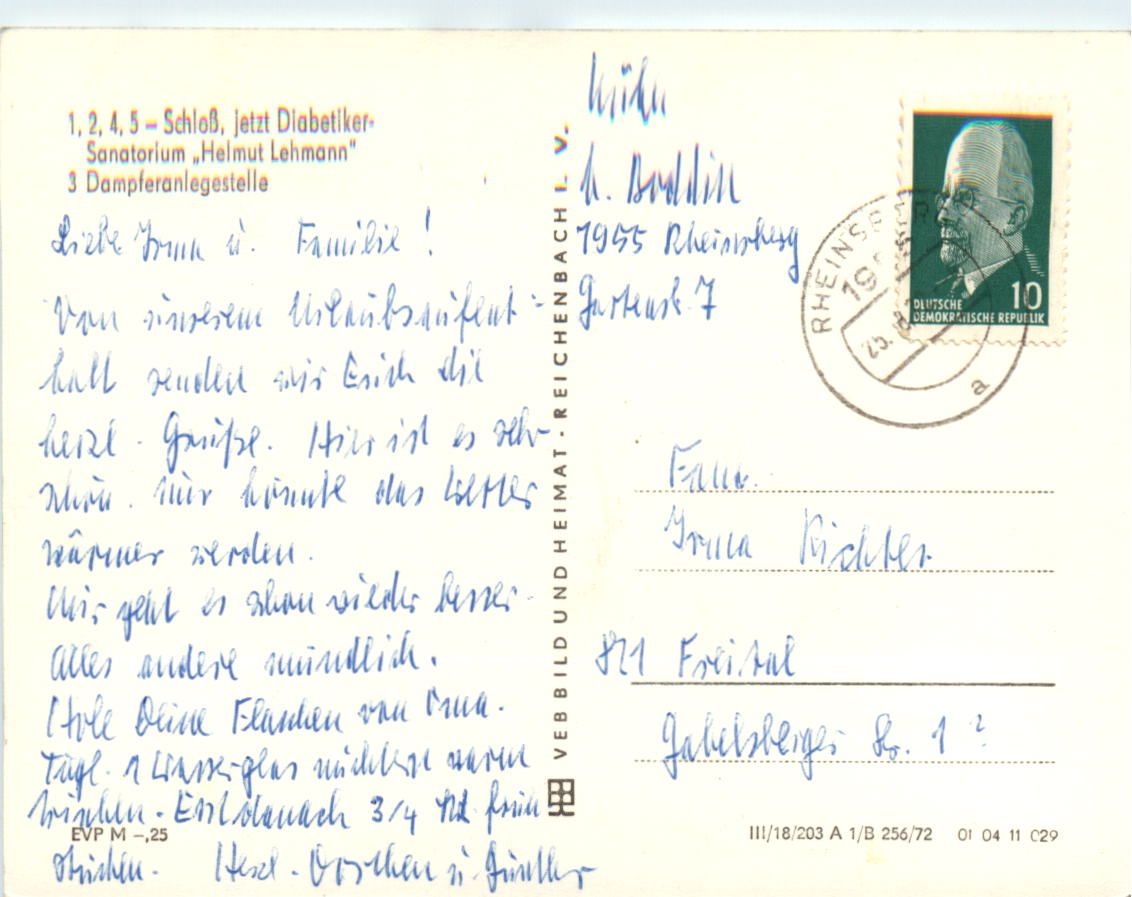 1, 2, 4, 5 – Schloß, jetzt Diabetiker-
Sanatorium „Helmut Lehmann"
3 Dampferanlegestelle
Liebe Irma u. Familie!
Von unserem Urlaubsaufent-
halt senden wir Euch die
herzl. Grüße. Hier ist es sehr
schön. Nur könnte das Wetter
wärmer werden.
Mir geht es schon wieder besser.
Alles andere mündlich.
Hole Deine Flaschen von Oma.
Tägl. 1 Wasserglas nüchtern warm
trinken. Erst danach 3/4 Std. früh
stücken. Herzl. Dorchen u. Günther
EVP M –,25
VEB BILD UND HEIMAT · REICHENBACH I. V.
Kühn
b. Boddin
1955 Rheinsberg
Gartenstr. 7
DEUTSCHE
DEMOKRATISCHE REPUBLIK
10
RHEINSBERG
195
25.
a
Fam.
Irma Richter
821 Freital
Gabelsberger Str. 1?
III/18/203 A 1/B 256/72 01 04 11 029